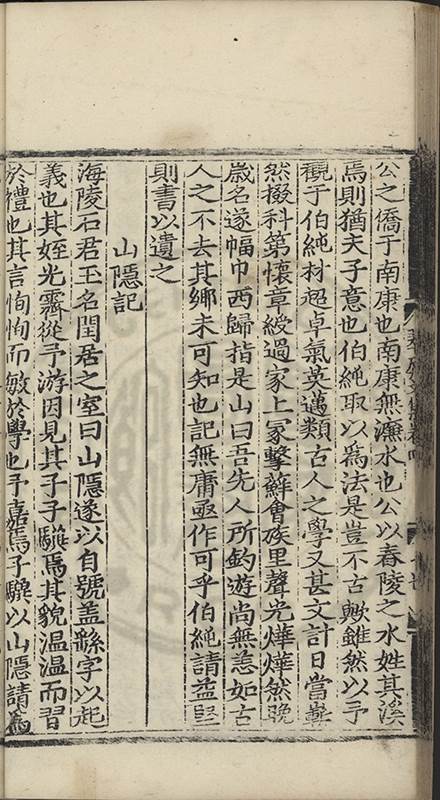 公之僑于南康也南康無濂水也公以舂陵之水姓其溪
焉則猶夫子意也伯純取以為法是豈不古歟雖然以予
觀于伯純材超卓氣英邁類古人之學又甚文計日當嶄
然掇科第懷章綬過家上冢擊鮮會族里聲光燁燁然晚
歲名遂幅巾西歸指是山曰吾先人所釣遊尚無恙如古
人之不去其鄉未可知也記無庸亟作可乎伯純請益堅
則書以遺之
山隱記
海陵石君玉名閏居之室曰山隱遂以自號盖繇字以起
義也其姪光霽從予游因見其子子驥焉其貌温温而習
於禮也其言恂恂而敏於學也予嘉焉子驥以山隱請爲